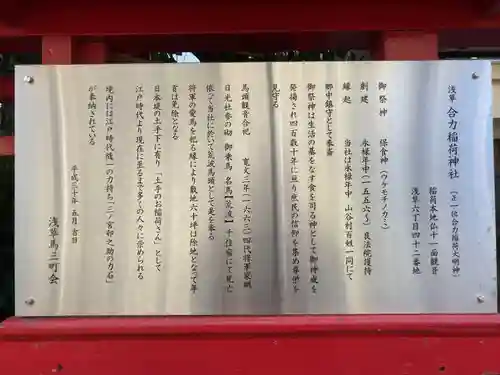 浅草 合力稲荷神社 (正一位合力稲荷大明神)
稲荷本地仏十一面観音
浅草六丁目四十二番地
御祭神 保食神(ウケモチノカミ)
創建 永禄年中(一五五六〜)良法院護持
縁起 当社は永禄年中 山谷村百姓一同にて
郷中鎮守として奉斎
御祭神は生活の基をなす食を司る神として御神威を
発揚され四百数十年に亘り庶民の信仰を集め尊併を
見守る
馬頭観音合祀 寛文三年(一六六三)四代将軍家綱
日光社参の砌 御乗馬 名馬【荒波】千住宿にて死亡
依って当社に於いて荒波馬頭として是を奉る
将軍の愛馬を祀る縁により敷地六十坪は除地となって年
貢は免除となる
日本堤の土手下に有り「土手のお稲荷さん」として
江戸時代より現在に至るまで多くの人々に崇められる
境内には江戸時代随一の力持ち「三ノ宮卯之助の力石」
が奉納されている
平成三十年 五月 吉日
浅草馬三町会